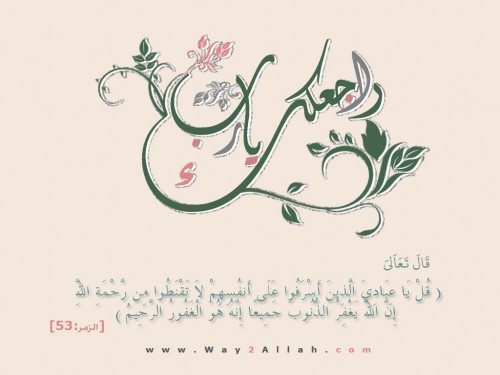 راجعلك يارب
قَالَ تَعَالَىٰ
( قُلْ يَا عِبَادِيَ الَّذِينَ أَسْرَفُوا عَلَى أَنفُسِهِمْ لَا تَقْنَطُوا مِن رَّحْمَةِ اللَّهِ
إِنَّ اللَّهَ يَغْفِرُ الذُّنُوبَ جَمِيعاً إِنَّهُ هُوَ الْغَفُورُ الرَّحِيمُ )
[الزمر:53]
www.Way2Allah.com